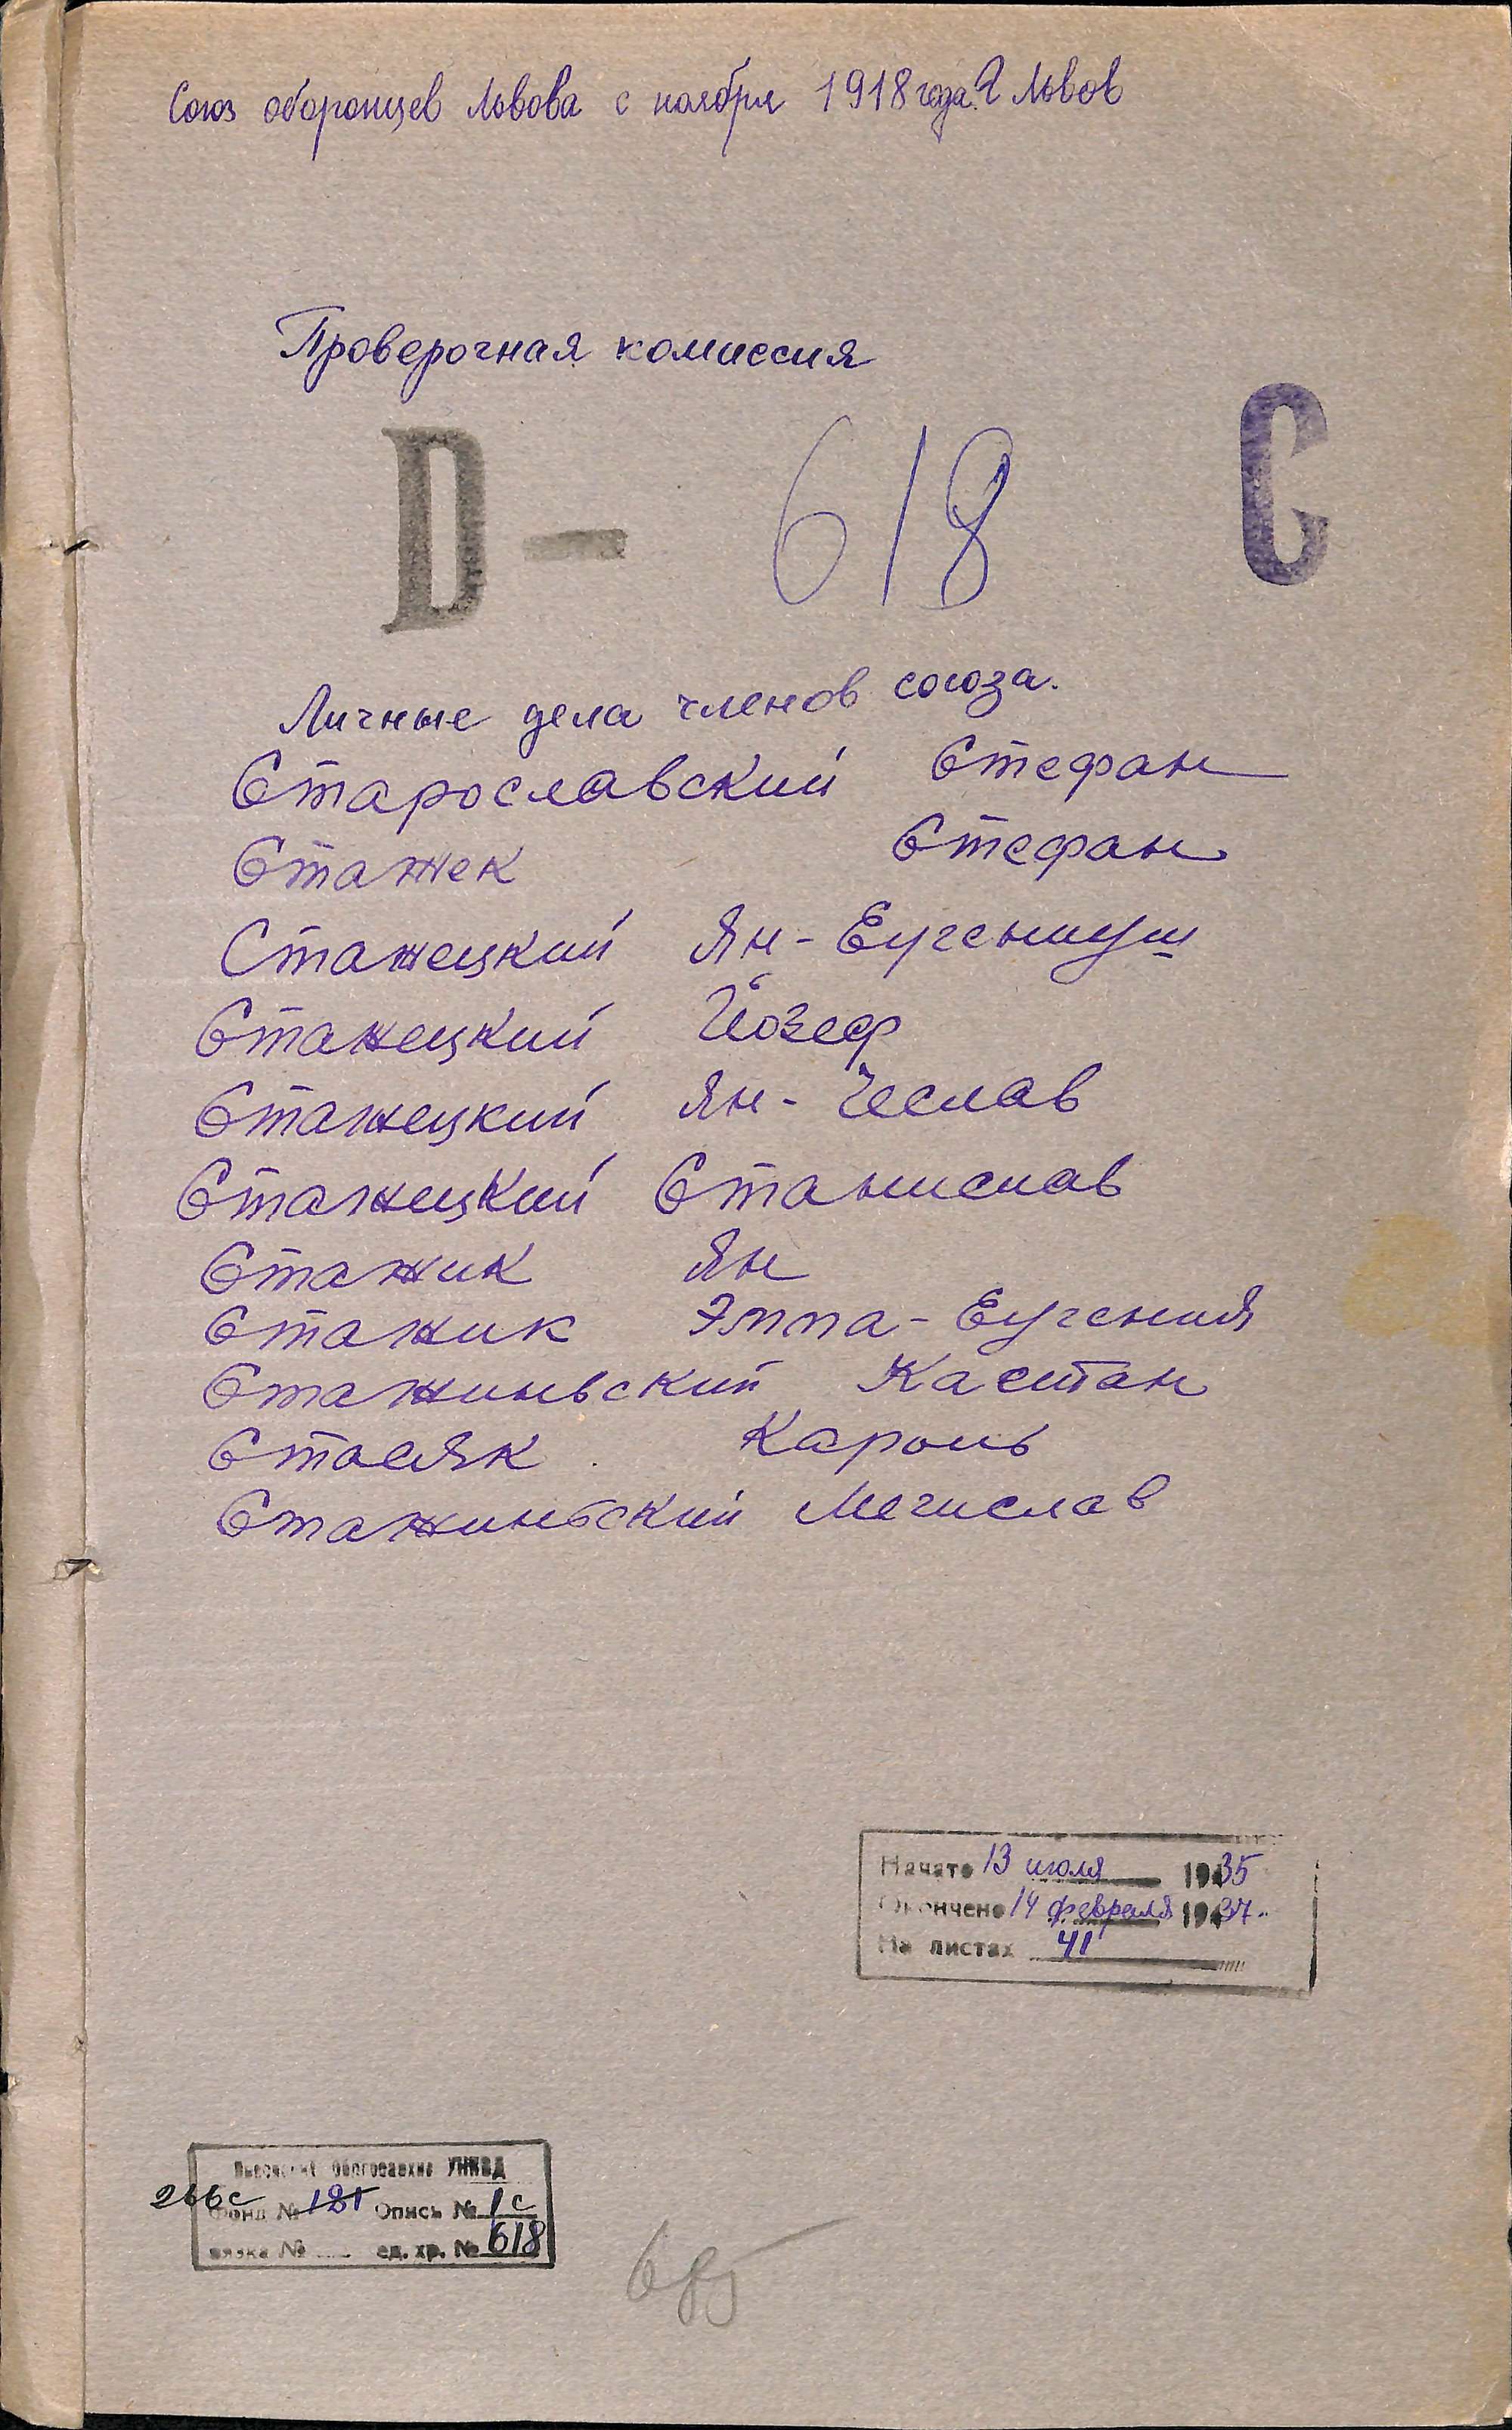 Союз оборонцев Львова с ноября 1918 года. г Львов
Проверочная комиссия
D — 618 С
Личные дела членов союза.
Старославский Стефан
Стажек Стефан
Стажецкий Ян-Еугениуш
Стажецкий Йозеф
Стажецкий Ян-Чеслав
Стажецкий Станислав
Стажик Ян
Стажик Эмма-Еугения
Стажиньвский Каетан
Стасяк Кароль
Стажиньский Мечислав
Начато 13 июля 1935
Окончено 14 февраля 1937.
На листах 41
Львовский Облгосархив УНКВД
266с Фонд № 181 Опись № 1с
вязка № ед. хр. № 618